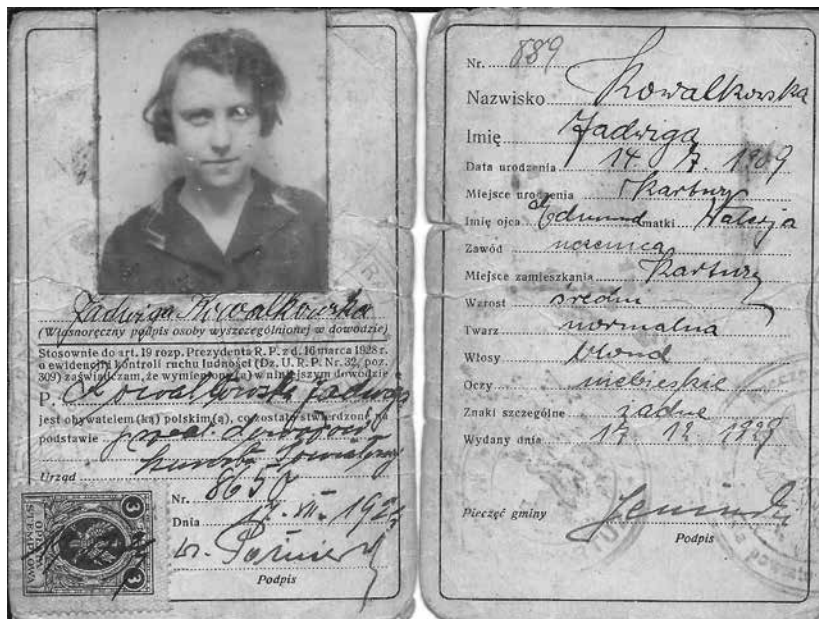 Jadwiga Kowalkowska
(Własnoręczny podpis osoby wyszczególnionej w dowodzie)
Stosownie do art. 19 rozp. Prezydenta R. P. z d. 16 marca 1928 r.
o ewidencji i kontroli ruchu ludności (Dz. U. R. P. Nr. 32, poz.
309) zaświadczam, że wymieniony(a) w niniejszym dowodzie
P. Kowalkowska Jadwiga
jest obywatelem(ką) polskim(ą), co zostało stwierdzone na
podstawie
Urząd
Nr. 8650
Dnia 17. XII. 192
Podpis
OPŁATA
STEMPLOWA
3 3
Nr. 889
Nazwisko Kowalkowska
Imię Jadwiga
Data urodzenia 14. 7. 1909
Miejsce urodzenia Kartuzy
Imię ojca Edmund matki Walerja
Zawód uczenica
Miejsce zamieszkania Kartuzy
Wzrost średni
Twarz normalna
Włosy blond
Oczy niebieskie
Znaki szczególne żadne
Wydany dnia 17 12 192
Pieczęć gminy
Podpis